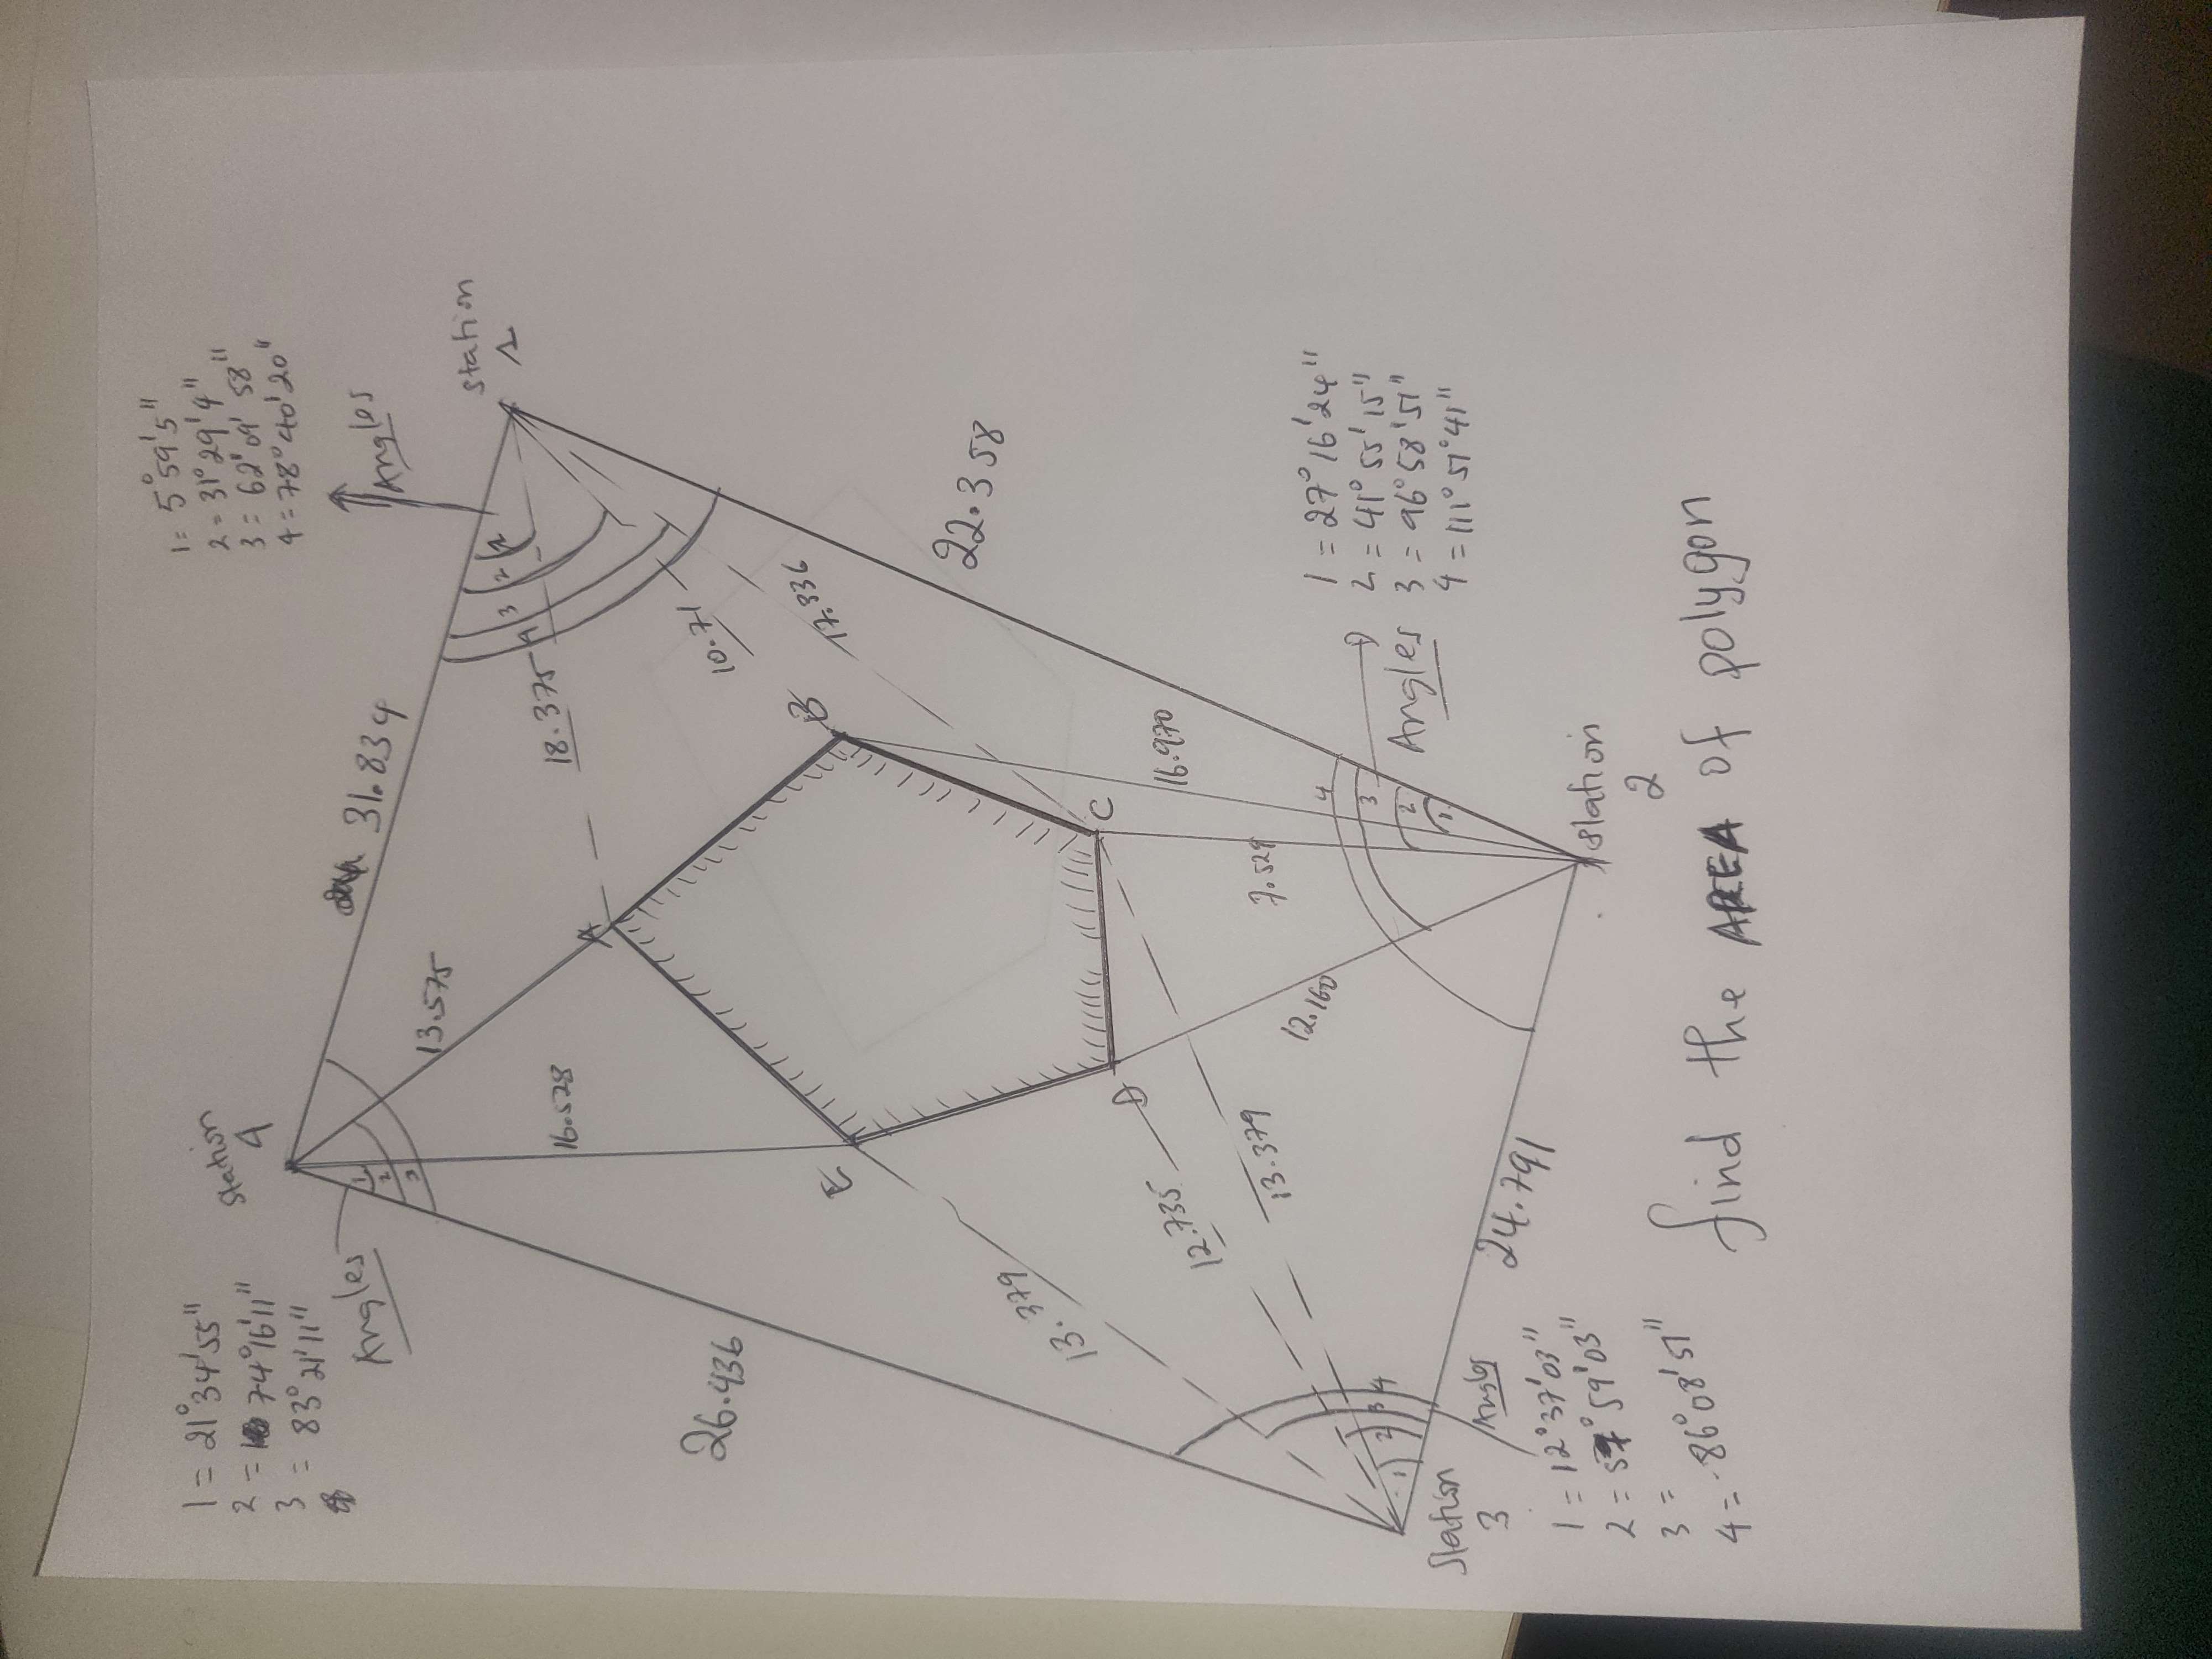 Station
1
1 = 5° 59' 5"
2 = 31° 29' 4"
3 = 62° 09' 58"
4 = 78° 40' 20"
Angles
31.834
18.375
10.71
17.336
22.358
Station
4
1 = 21° 34' 55"
2 = 74° 16' 11"
3 = 83° 21' 11"
Angles
1
2
3
13.575
16.528
26.436
1
2
3
4
A
B
C
D
E
16.970
7.529
12.160
13.379
12.735
13.379
24.791
1 = 27° 16' 24"
2 = 41° 55' 15"
3 = 96° 58' 51"
4 = 111° 51° 41"
Angles
4
3
2
1
Station
2
Station
3
1
2
3
4
Angles
1 = 12° 37' 03"
2 = 57° 59' 03"
3 =
4 = 86° 08' 51"
find the AREA of polygon